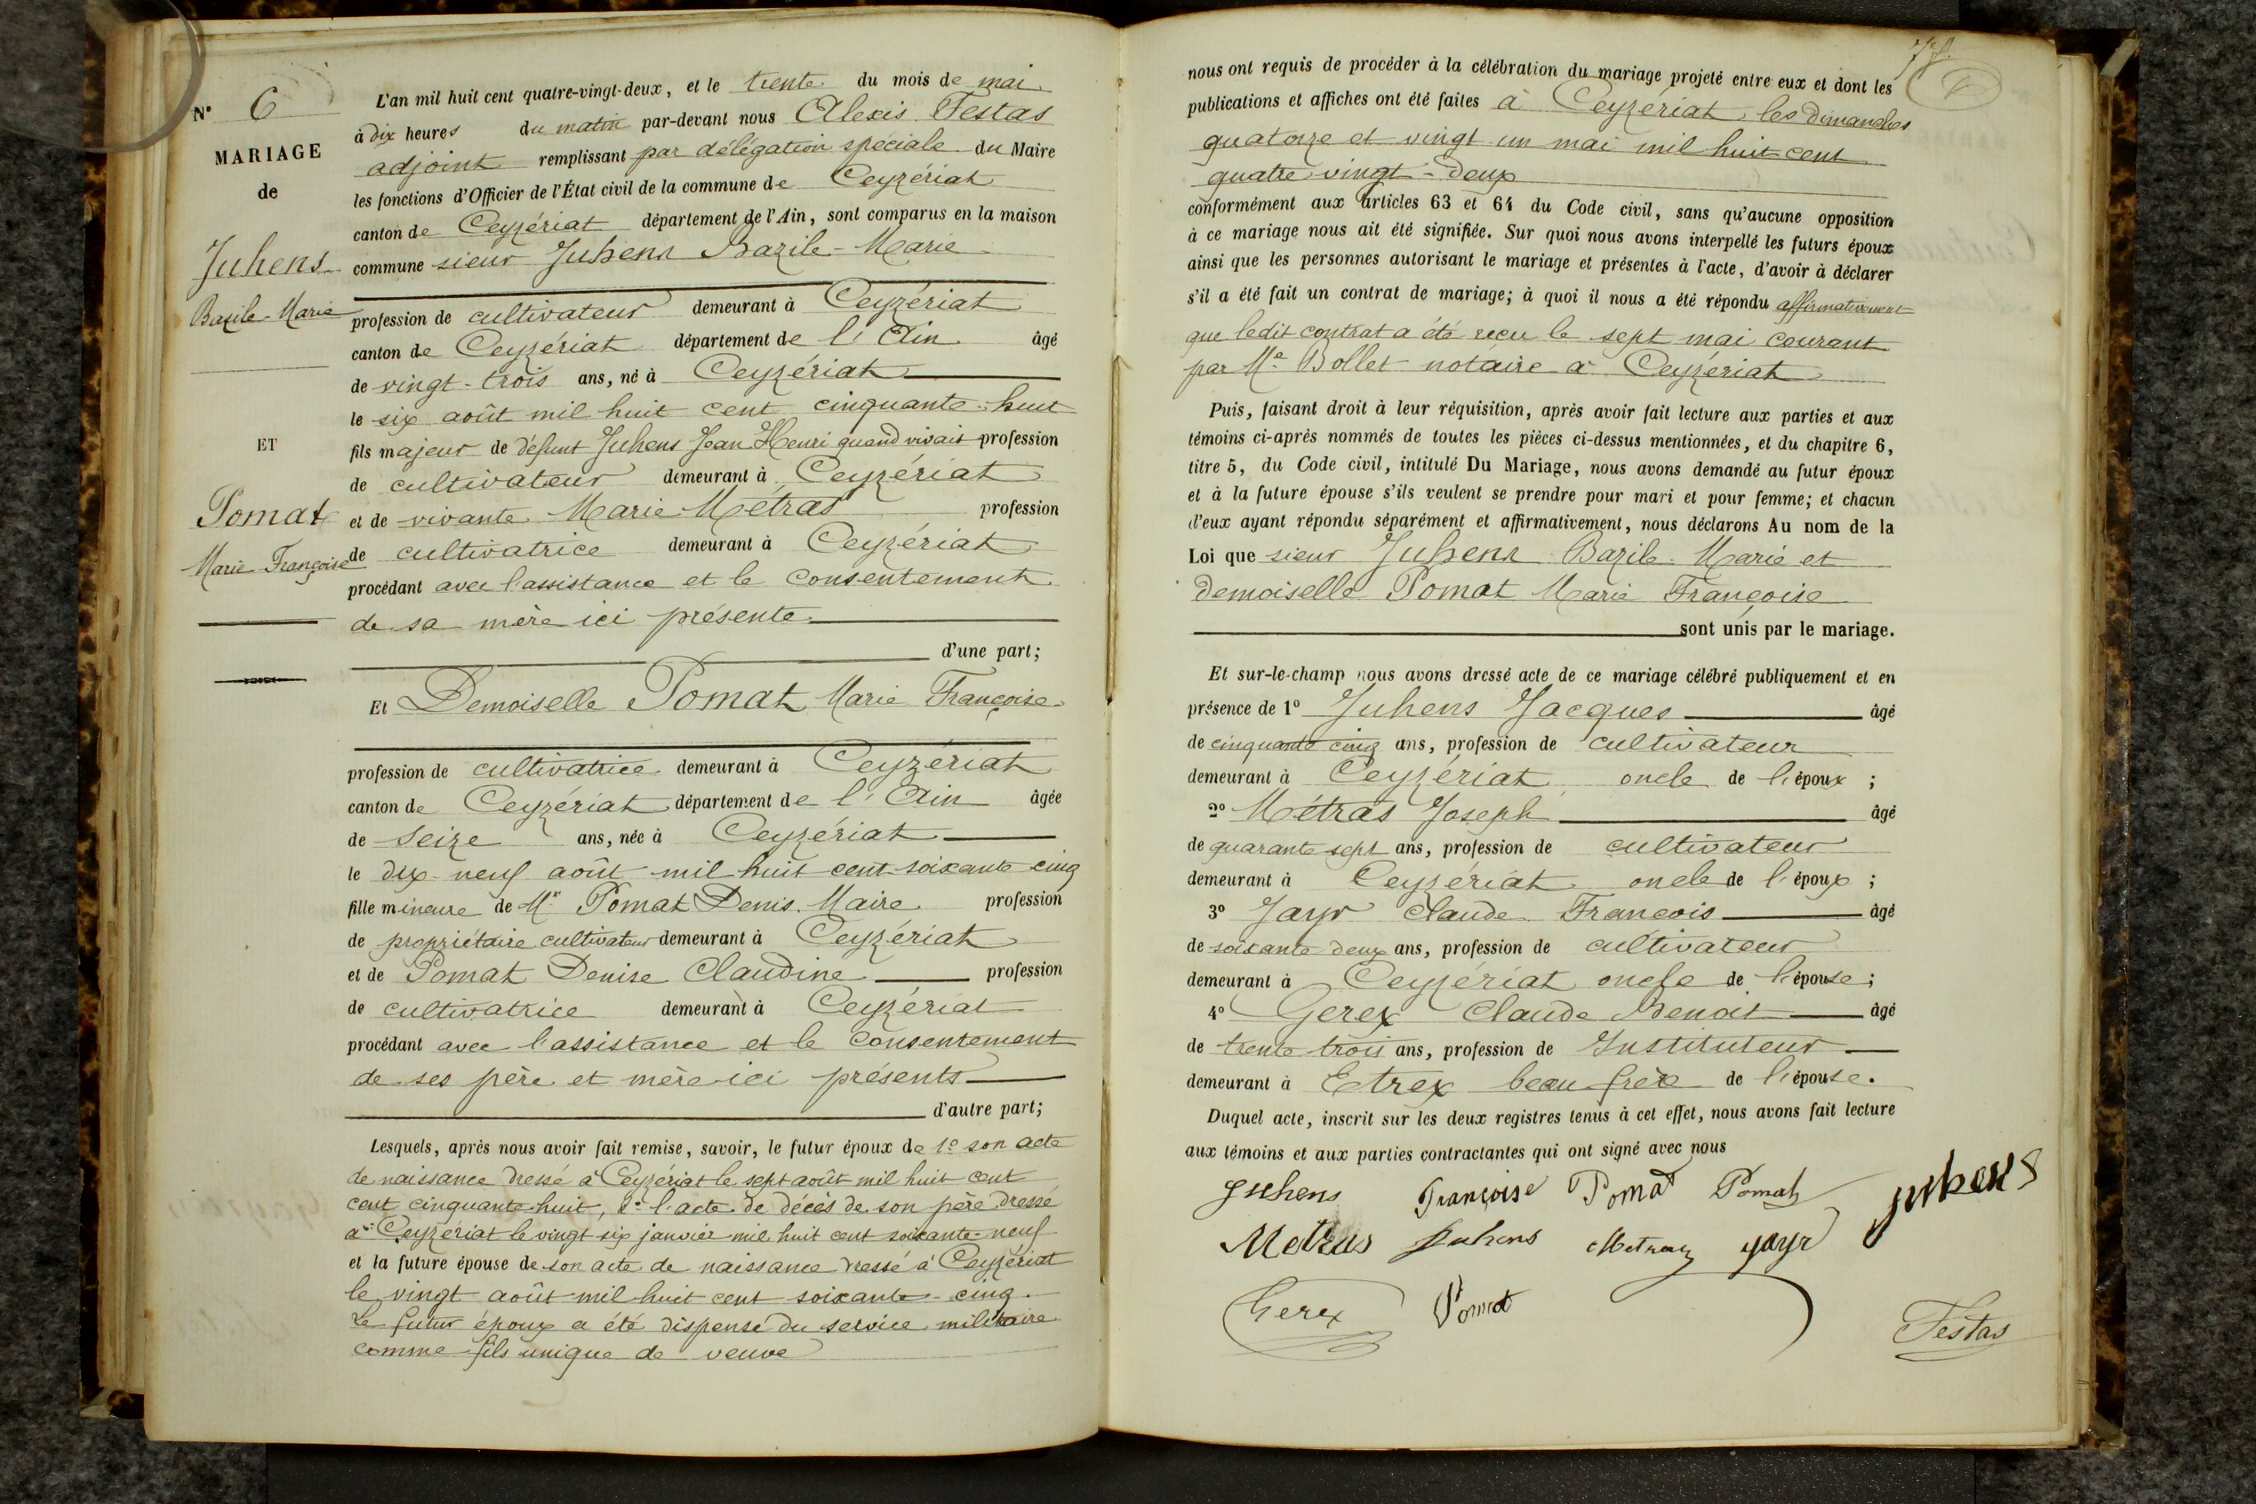 N° 6
MARIAGE
de
Juhens
Bazile-Marie
ET
Pomat
Marie Françoise
L'an mil huit cent quatre-vingt-deux, et le trente du mois de mai
à dix heures du matin par-devant nous Alexis Festas
adjoint remplissant par délégation spéciale du Maire
les fonctions d'Officier de l'État civil de la commune de Ceyzériat
canton de Ceyzériat département de l'Ain, sont comparus en la maison
commune sieur Juhens Bazile-Marie
profession de cultivateur demeurant à Ceyzériat
canton de Ceyzériat département de l'Ain âgé
de vingt-trois ans, né à Ceyzériat
le six août mil huit cent cinquante-huit
fils majeur de défunt Juhens Jean Henri quand vivait profession
de cultivateur demeurant à Ceyzériat
et de vivante Marie Métras profession
de cultivatrice demeurant à Ceyzériat
procédant avec l'assistance et le consentement
de sa mère ici présente
d'une part;
Et Demoiselle Pomat Marie Françoise
profession de cultivatrice demeurant à Ceyzériat
canton de Ceyzériat département de l'Ain âgée
de seize ans, née à Ceyzériat
le dix-neuf août mil huit cent soixante cinq
fille mineure de Mr Pomat Denis Maire profession
de propriétaire cultivateur demeurant à Ceyzériat
et de Pomat Denise Claudine profession
de cultivatrice demeurant à Ceyzériat
procédant avec l'assistance et le consentement
de ses père et mère ici présents
d'autre part;
Lesquels, après nous avoir fait remise, savoir, le futur époux de 1° son acte
de naissance dressé à Ceyzériat le sept août mil huit cent
cent cinquante-huit, 2° l'acte de décès de son père dressé
à Ceyzériat le vingt six janvier mil huit cent soixante-neuf
et la future épouse de son acte de naissance dressé à Ceyzériat
le vingt août mil huit cent soixante-cinq.
Le futur époux a été dispensé du service militaire
comme fils unique de veuve
nous ont requis de procéder à la célébration du mariage projeté entre eux et dont les
publications et affiches ont été faites à Ceyzériat les dimanches
quatorze et vingt un mai mil huit cent
quatre vingt-deux
conformément aux articles 63 et 64 du Code civil, sans qu'aucune opposition
à ce mariage nous ait été signifiée. Sur quoi nous avons interpellé les futurs époux
ainsi que les personnes autorisant le mariage et présentes à l'acte, d'avoir à déclarer
s'il a été fait un contrat de mariage; à quoi il nous a été répondu affirmativement
que ledit contrat a été reçu le sept mai courant
par Me Bollet notaire à Ceyzériat
Puis, faisant droit à leur réquisition, après avoir fait lecture aux parties et aux
témoins ci-après nommés de toutes les pièces ci-dessus mentionnées, et du chapitre 6,
titre 5, du Code civil, intitulé Du Mariage, nous avons demandé au futur époux
et à la future épouse s'ils veulent se prendre pour mari et pour femme; et chacun
d'eux ayant répondu séparément et affirmativement, nous déclarons Au nom de la
Loi que sieur Juhens Bazile-Marie et
demoiselle Pomat Marie Françoise
sont unis par le mariage.
Et sur-le-champ nous avons dressé acte de ce mariage célébré publiquement et en
présence de 1° Juhens Jacques âgé
de cinquante cinq ans, profession de cultivateur
demeurant à Ceyzériat oncle de l'époux ;
2° Métras Joseph âgé
de quarante sept ans, profession de cultivateur
demeurant à Ceyzériat oncle de l'époux ;
3° Jayr Claude François âgé
de soixante deux ans, profession de cultivateur
demeurant à Ceyzériat oncle de l'épouse ;
4° Gerex Claude Benoit âgé
de trente trois ans, profession de Instituteur
demeurant à Etrex beau frère de l'épouse.
Duquel acte, inscrit sur les deux registres tenus à cet effet, nous avons fait lecture
aux témoins et aux parties contractantes qui ont signé avec nous
Juhens Françoise Pomat Pomat Juhens
Metras Juhens Metras Jayr
Gerex Pomat
Festas